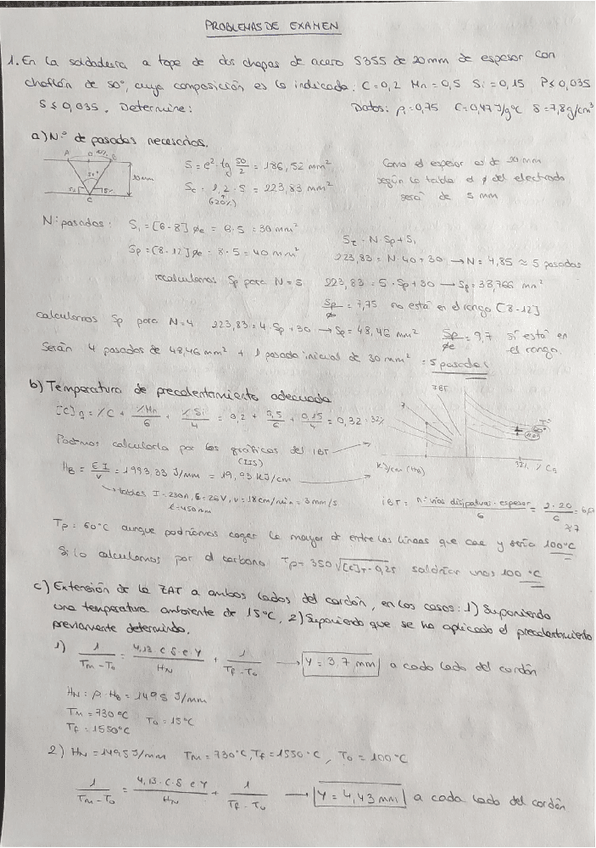 PROBLEMAS DE EXAMEN
1. En la soldadura a tope de dos chapas de acero S355 de 20mm de espesor con
chaflán de 50°, cuya composición es la indicada. C=0,2 Mn=0,5 Si=0,15 P≤0,035
S≤0,035. Determine: Datos: η=0,75 C=0,47J/g°C δ=7,8g/cm³
a) N.° de pasadas necesarias.
S = e²·tg 50/2 = 186,52 mm²
Sc = 1,2·S = 223,83 mm²
(+20%)
20mm
50°
Como el espesor es de 20 mm
según la tabla el φ del electrodo
será de 5 mm
N: pasadas: S₁ = [6-8] φe = 6·5 = 30 mm²
Sp = [8-12] φe = 8·5 = 40 mm²
St = N Sp + S₁
223,83 = N·40 + 30 → N = 4,85 ≈ 5 pasadas
recalculamos Sp para N=5 223,83 = 5·Sp+30 → Sp = 38,766 mm²
Sp/φ = 7,75 no está en el rango [8-12]
calculamos Sp para N=4 223,83 = 4·Sp+30 → Sp = 48,46 mm² Sp/φe = 9,7 sí está en el rango.
Serán 4 pasadas de 48,46 mm² + 1 pasada inicial de 30 mm² = 5 pasadas
b) Temperatura de precalentamiento adecuada
[C]q = %C + %Mn/6 + %Si/4 = 0,2 + 0,5/6 + 0,15/4 = 0,32
Podemos calcularla por las gráficas del IBT
HB = EI/v = 1993,33 J/mm = 19,93 KJ/cm
tablas I=230A, E=26V, v=18cm/min=3mm/s
E=450mm
IBT
KJ/cm (HB)
IBT = n: vías disipativas · espesor/6 = 2·20/6 =
Tp = 60°C aunque podríamos coger la mayor de entre las líneas que cae y sería 100°C
Si lo calculamos por el carbono Tp = 350√[C]T-0,25 saldrían unos 100 °C
c) Extensión de la ZAT a ambos lados del cordón, en los casos: 1) Suponiendo
una temperatura ambiente de 15°C, 2) Suponiendo que se ha aplicado el precalentamiento
previamente determinado.
1) 1/(Tm-To) = 4,13 C δ e Y/HN + 1/(Tf-To) → Y = 3,7 mm a cada lado del cordón
HN = η·HB = 1495 J/mm
Tm = 730°C To = 15°C
Tf = 1550°C
2) HN = 1495 J/mm Tm = 730°C, Tf = 1550°C, To = 100°C
1/(Tm-To) = 4,13·C·δ e Y/HN + 1/(Tf-To) → Y = 4,43 mm a cada lado del cordón